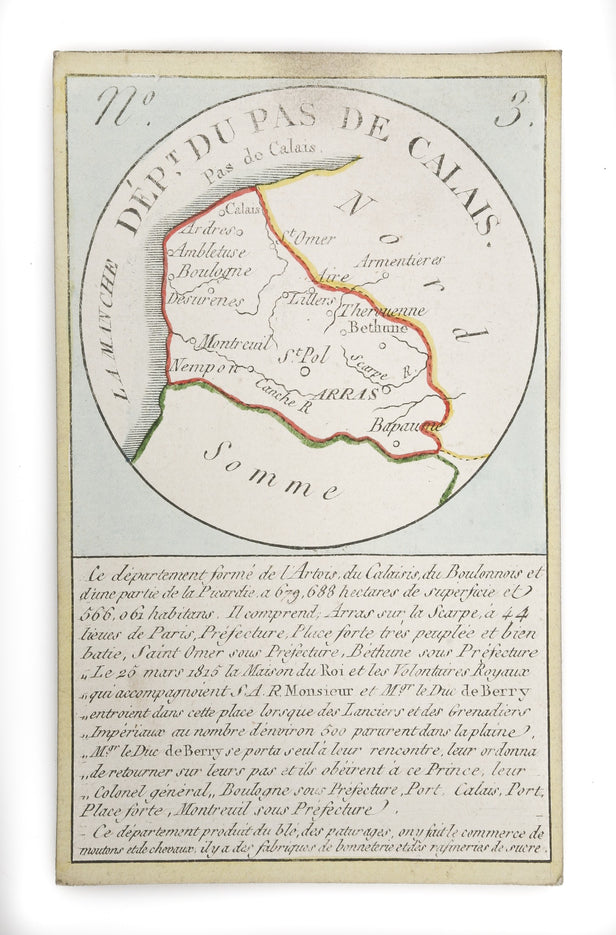 No. 3.
DÉPT. DU PAS DE CALAIS.
Pas de Calais.
LA MANCHE
Nord
Calais
Ardres
St Omer
Ambletuse
Armentieres
Boulogne
Aire
Desurenes
Lillers
Therouenne
Bethune
Montreuil
St Pol
Scarpe R.
Nempon
Canche R
ARRAS
Bapaume
Somme
Ce département formé de l'Artois, du Calaisis, du Boulonnois et
d'une partie de la Picardie, a 679,688 hectares de superficie et
566,061 habitans. Il comprend; Arras sur la Scarpe, à 44
lieues de Paris, Préfecture, Place forte très peuplée et bien
batie, Saint Omer sous Préfecture, Béthune sous Préfecture
„Le 25 mars 1815 la Maison du Roi et les Volontaires Royaux
„qui accompagnoient S.A.R Monsieur et Mgr le Duc de Berry
„entroient dans cette place lorsque des Lanciers et des Grenadiers
„Impériaux au nombre d'environ 500 parurent dans la plaine,
„Mgr le Duc de Berry se porta seul à leur rencontre, leur ordonna
„de retourner sur leurs pas et ils obéirent à ce Prince, leur
„Colonel général„ Boulogne sous Préfecture, Port, Calais, Port,
Place forte, Montreuil sous Préfecture.
Ce département produit du blé, des paturages, on y fait le commerce de
moutons et de chevaux; il y a des fabriques de bonneterie et des rafineries de sucre.